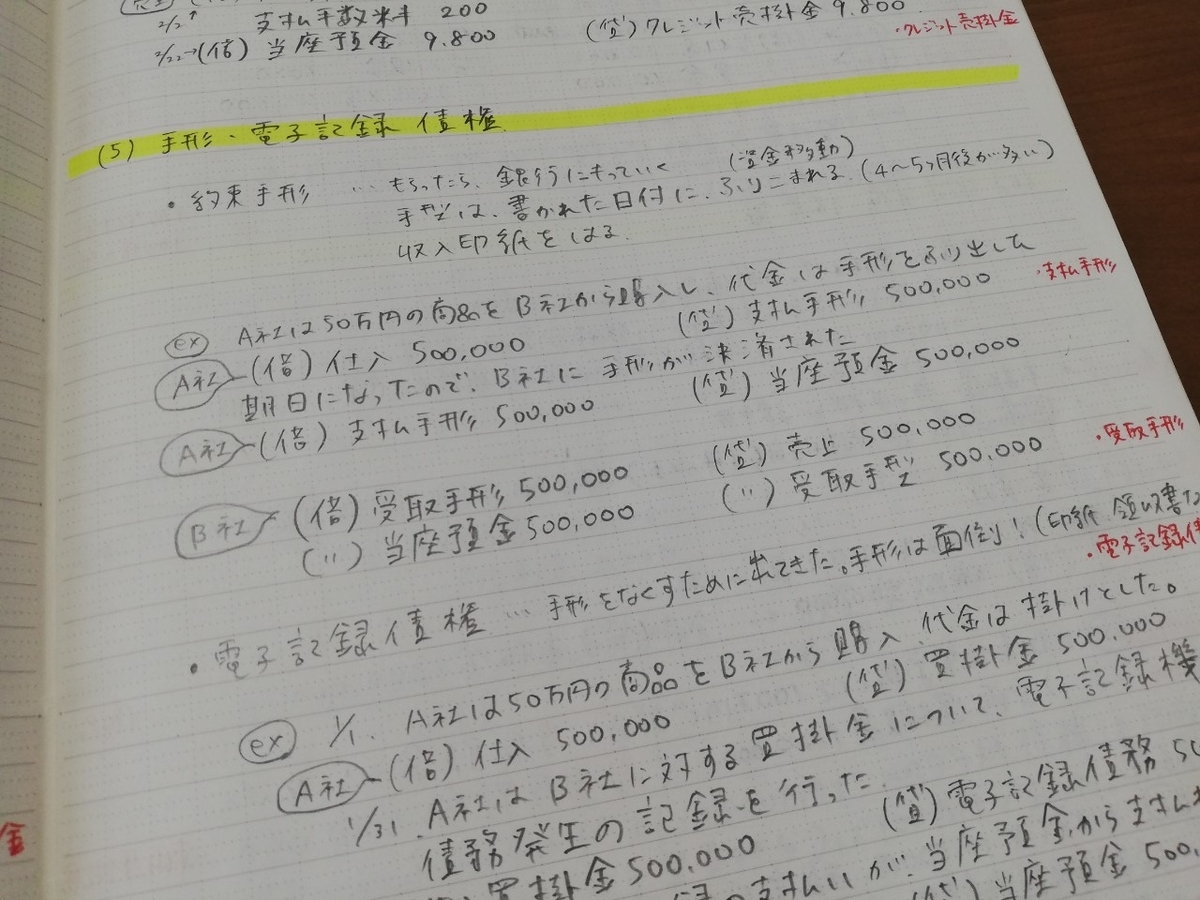 2/2↑ 支払手数料 200
2/22→(借) 当座預金 9.800 (貸) クレジット売掛金 9.800
・クレジット売掛金
(5) 手形・電子記録債権
・約束手形 … もらったら、銀行にもっていく (資金移動)
手型は、書かれた日付に、ふりこまれる。(4〜5ヶ月後が多い)
収入印紙をはる。
ex A社は50万円の商品をB社から購入し、代金は手形をふり出した
A社 (借) 仕入 500,000 (貸) 支払手形 500,000 ・支払手形
期日になったので、B社に手形が決済された
A社 (借) 支払手形 500,000 (貸) 当座預金 500,000
B社 (借) 受取手形 500,000 (貸) 売上 500,000 ・受取手形
(〃) 当座預金 500,000 (〃) 受取手型 500,000
・電子記録債権 … 手形をなくすために出てきた。手形は面倒!(印紙 領収書
・電子記録債
ex 1/1. A社は50万円の商品をB社から購入、代金は掛けとした。
A社 (借) 仕入 500,000 (貸) 買掛金 500,000
1/31. A社はB社に対する買掛金について、電子記録機
債務発生の記録を行った。
買掛金 500,000 (貸) 電子記録債務 50
の支払いが、当座預金から支払
当座預金 500,
金